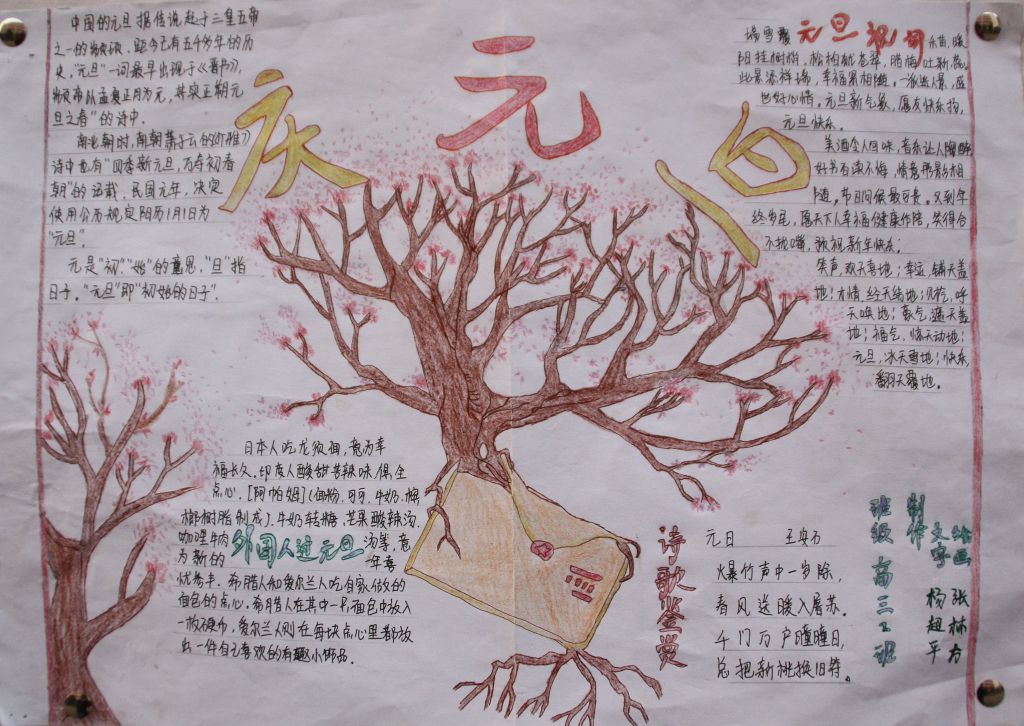 庆元旦
中国的元旦,据传说起于三皇五帝
之一的颛顼,距今已有五千多年的历
史,"元旦"一词最早出现于《晋书》,
颛帝以孟夏正月为元,其实正朔元
旦之春"的诗中.
南北朝时,南朝萧子云的《介雅》
诗中也有"四季新元旦,万寿初春
朝"的记载.民国元年,决定
使用公历规定阳历1月1日为
"元旦".
元是"初""始"的意思,"旦"指
日子,"元旦"即"初始的日子".
元旦祝词
瑞雪飘
阳挂树梢,松柏犹苍翠,腊梅吐新蕊,
此景添祥瑞,幸福累相随,一派出人景,成
也好心情,元旦新气象,愿友快乐抱,
元旦快乐.
美酒令人回味,音乐让人陶醉
好书百读不悔,情意那影相
随,节日问候最可贵,又到年
终岁尾,愿天下人幸福健康作陪,笑得合
不拢嘴,敬祝新年快乐;
笑声,欢天喜地;幸运,铺天盖
地;才情,经天纬地;
天唤地;
地;福气,惊天动地;
元旦,冰天雪地;快乐,
翻天覆地.
外国人过元旦
日本人吃龙须面,意为幸
福长久.印度人酸甜苦辣味俱全
点心.[阿帕姆](面粉、可可、牛奶、椰
榔树脂制成)、牛奶转糖、芒果酸辣汤、
咖哩牛肉汤等,意
为新的一年喜
忧参半.希腊人和爱尔兰人吃自家做的
面包的点心.希腊人在其中一只面包中放入
一枚硬币,爱尔兰人则在每块点心里都放
出一件自己喜欢的有趣小饰品.
诗歌鉴赏
元日 王安石
爆竹声中一岁除,
春风送暖入屠苏.
千门万户曈曈日,
总把新桃换旧符。
班级 高三2班
制作
文字 杨超平
绘画 张林方